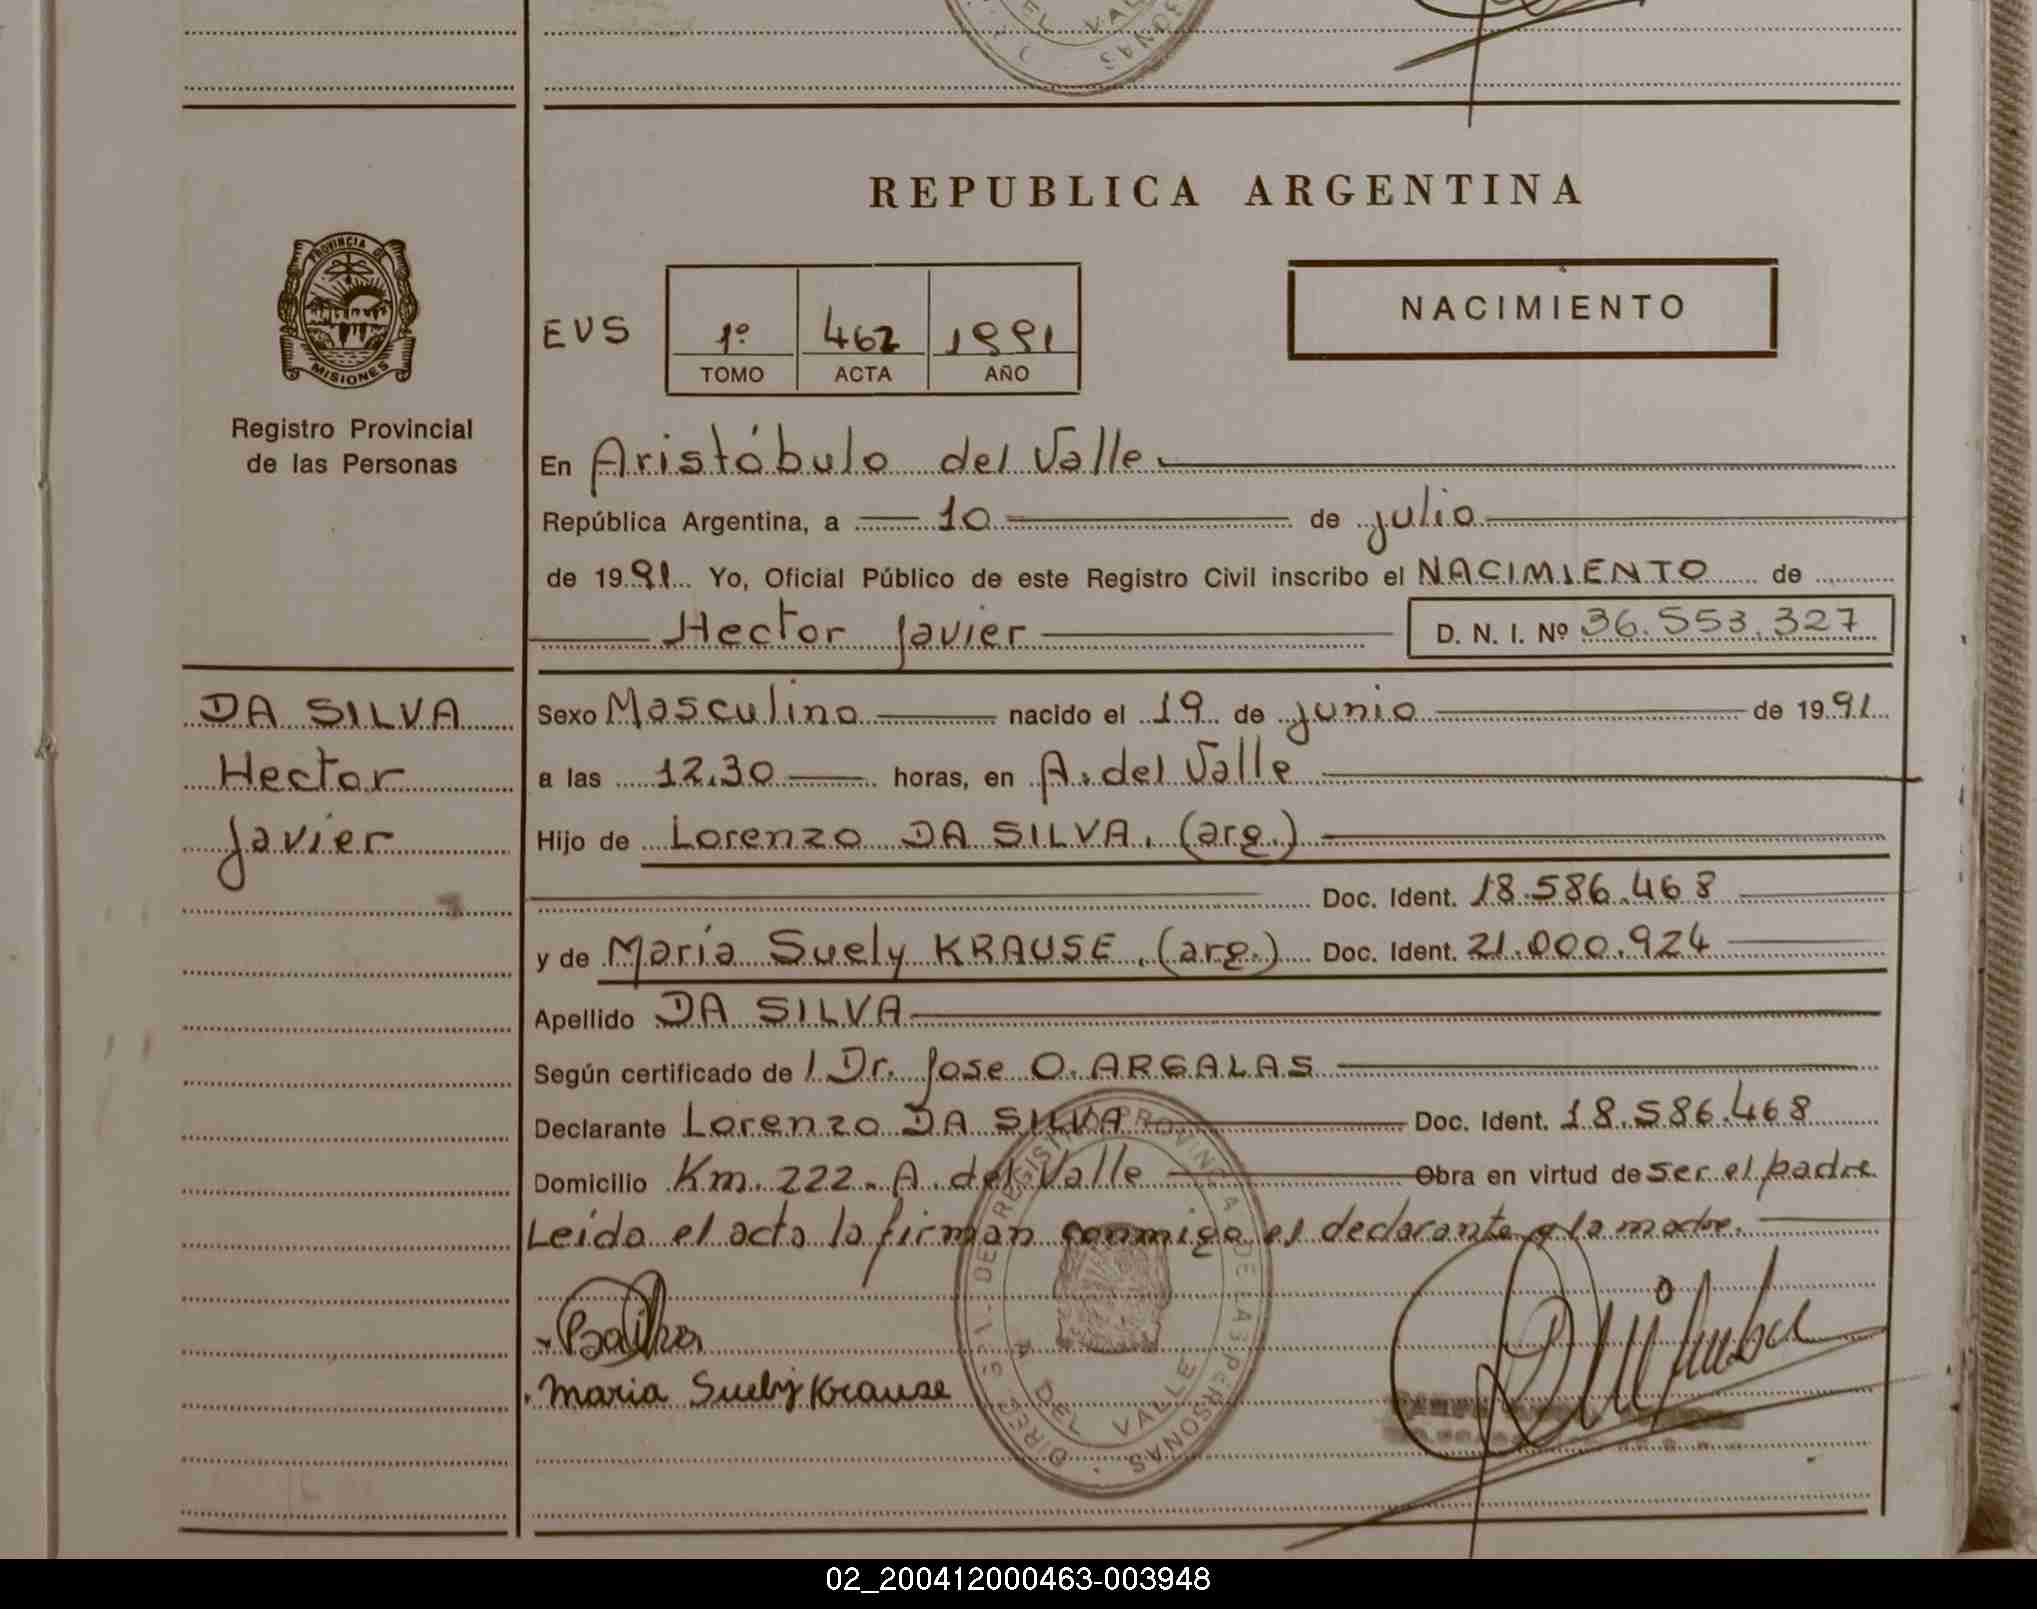 DEL VALLE
PERSONAS
REPUBLICA ARGENTINA
PROVINCIA DE
MISIONES
Registro Provincial
de las Personas
EVS
1º 462 1991
TOMO ACTA AÑO
NACIMIENTO
En Aristóbulo del Valle
República Argentina, a 10 de julio
de 1991 Yo, Oficial Público de este Registro Civil inscribo el NACIMIENTO de
Hector Javier D. N. I. Nº 36.553.327
DA SILVA
Hector
Javier
Sexo Masculino nacido el 19 de junio de 1991
a las 12.30 horas, en A. del Valle
Hijo de Lorenzo DA SILVA. (arg.)
Doc. Ident. 18.586.468
y de María Suely KRAUSE. (arg.) Doc. Ident. 21.000.924
Apellido DA SILVA
Según certificado de l Dr. Jose O. ARGALAS
Declarante Lorenzo DA SILVA Doc. Ident. 18.586.468
Domicilio Km. 222. A. del Valle Obra en virtud de ser el padre
Leída el acta la firman conmigo el declarante y la madre.
Maria Suely Krause
DIREC. GRAL. DEL REGISTRO PROVINCIAL DE LAS PERSONAS
A. DEL VALLE
02_200412000463-003948